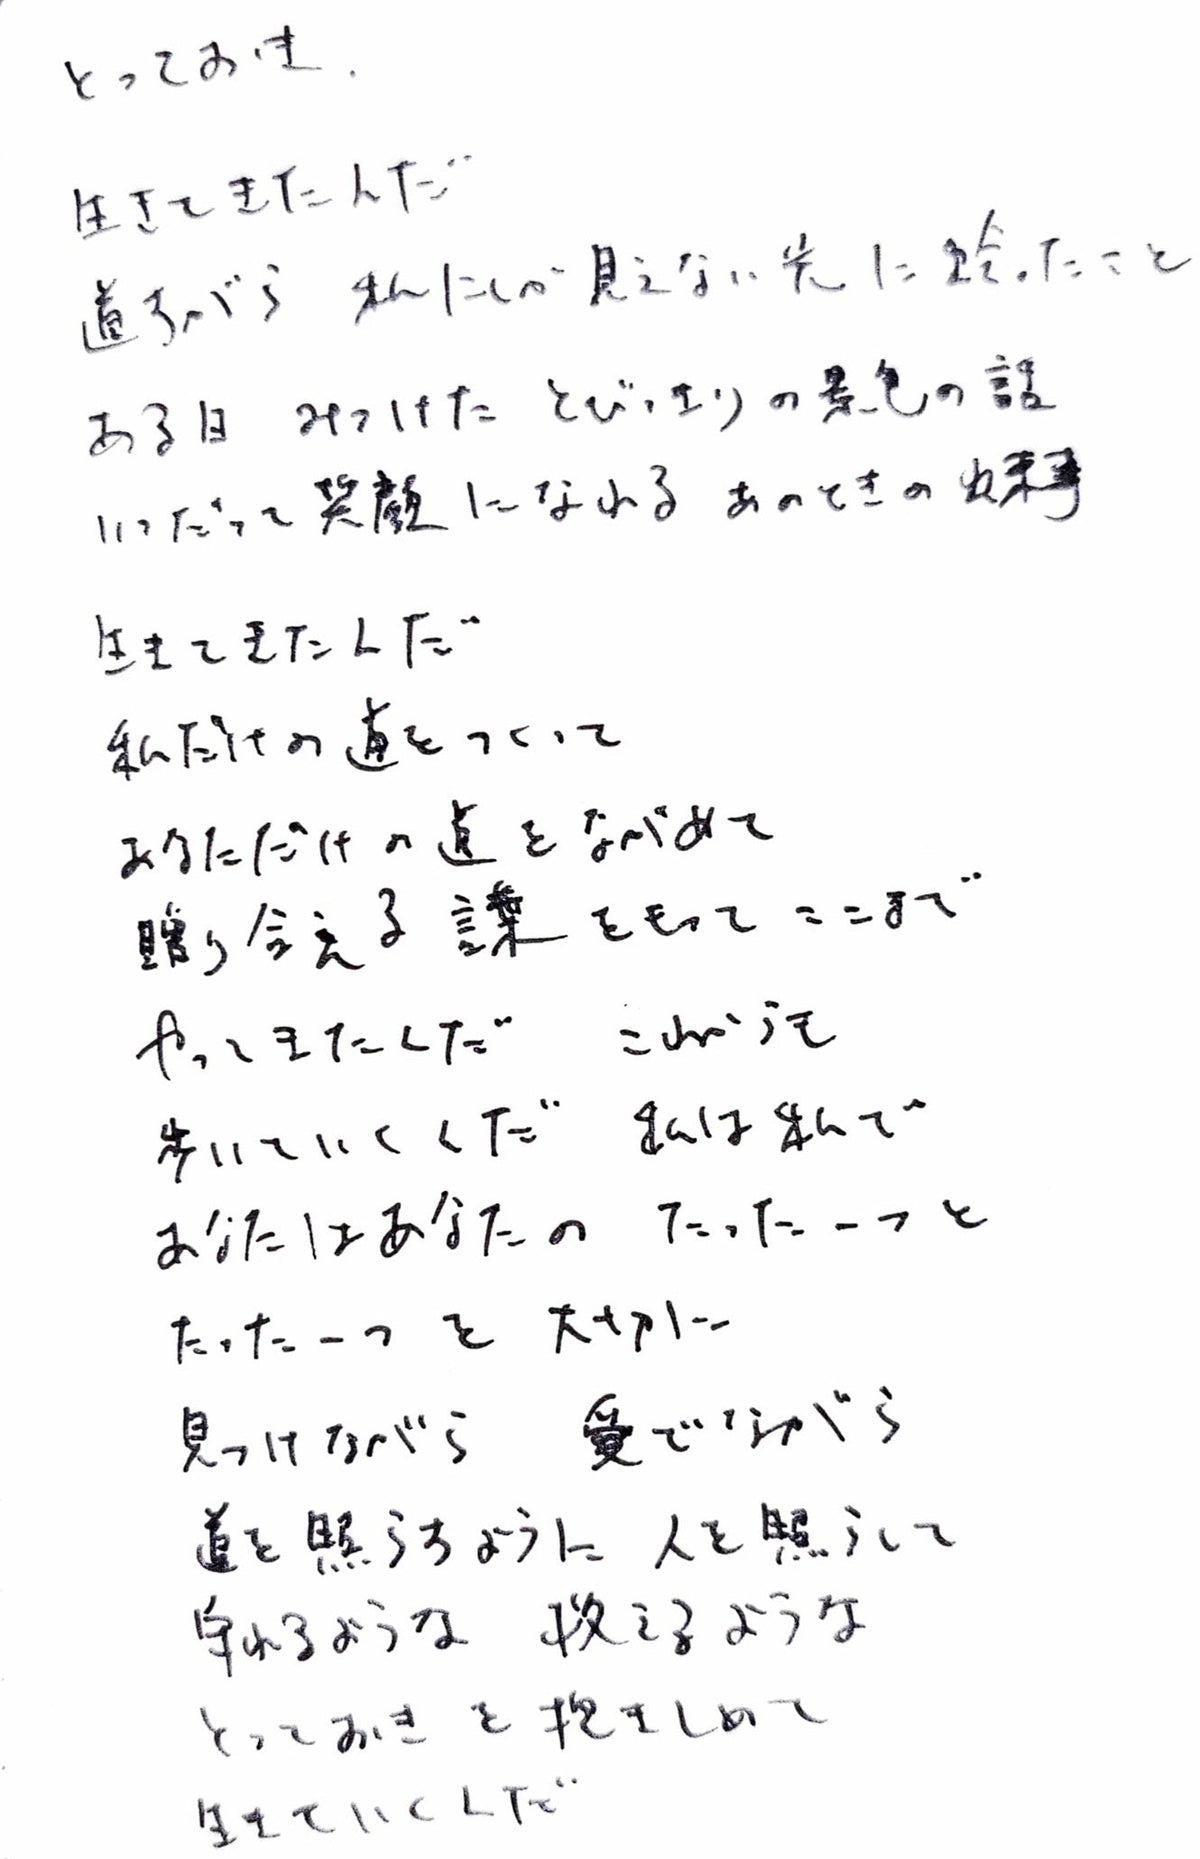 とっておき.
生きてきたんだ
道すがら 私にしか見えない光に会ったこと
ある日 みつけた とびっきりの景色の話
いつだって笑顔になれる あのときの出来事
生きてきたんだ
私だけの道をつくって
あなただけの道をながめて
贈り合える言葉をもってここまで
やってきたんだ これからも
歩いていくんだ 私は私で
あなたはあなたの たった一つと
たった一つを 大切に
見つけながら 愛でながら
道を照らすように 人を照らして
守れるような 救えるような
とっておきを抱きしめて
生きていくんだ